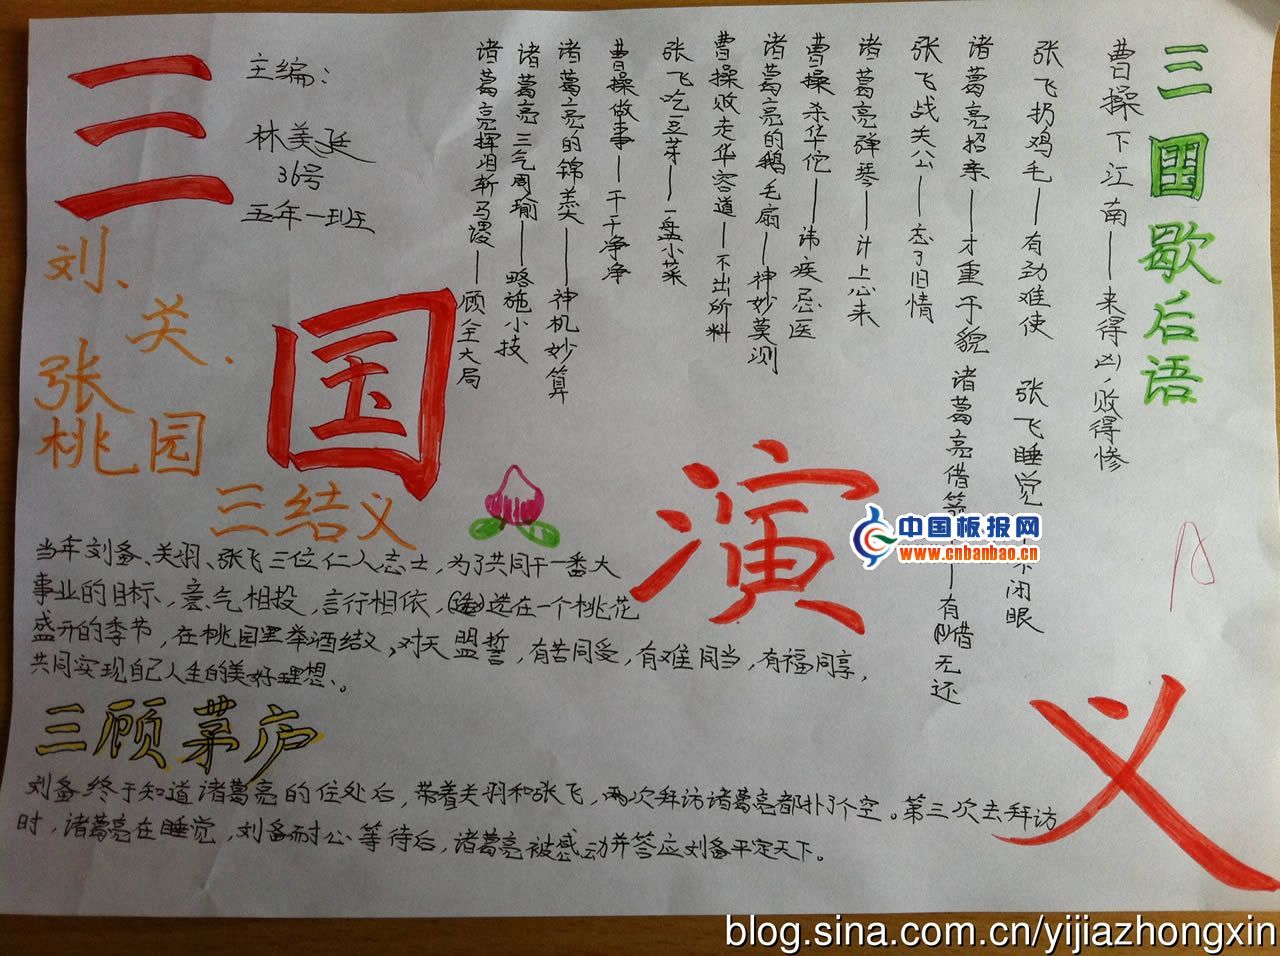 三国演义
主编：
林美廷
36号
五年一班
三国歇后语
曹操下江南——来得凶,败得惨
张飞扔鸡毛——有劲难使
张飞睡觉——不闭眼
诸葛亮招亲——才重于貌
诸葛亮借箭——有借无还
张飞战关公——忘了旧情
诸葛亮弹琴——计上心来
曹操杀华佗——讳疾忌医
诸葛亮的鹅毛扇——神妙莫测
曹操败走华容道——不出所料
张飞吃豆芽——一盘小菜
曹操做事——干干净净
诸葛亮的锦囊——神机妙算
诸葛亮三气周瑜——略施小技
诸葛亮挥泪斩马谡——顾全大局
刘、
关、
张
桃园
三结义
当年刘备、关羽、张飞三位仁人志士，为了共同干一番大
事业的目标，意气相投，言行相依，选在一个桃花
盛开的季节，在桃园里举酒结义，对天盟誓，有苦同受，有难同当，有福同享，
共同实现自己人生的美好理想、。
三顾茅庐
刘备终于知道诸葛亮的住处后，带着关羽和张飞，两次拜访诸葛亮都扑了个空。第三次去拜访
时，诸葛亮在睡觉，刘备耐心等待后，诸葛亮被感动并答应刘备平定天下。
中国板报网
www.cnbanbao.cn
blog.sina.com.cn/yijiazhongxin